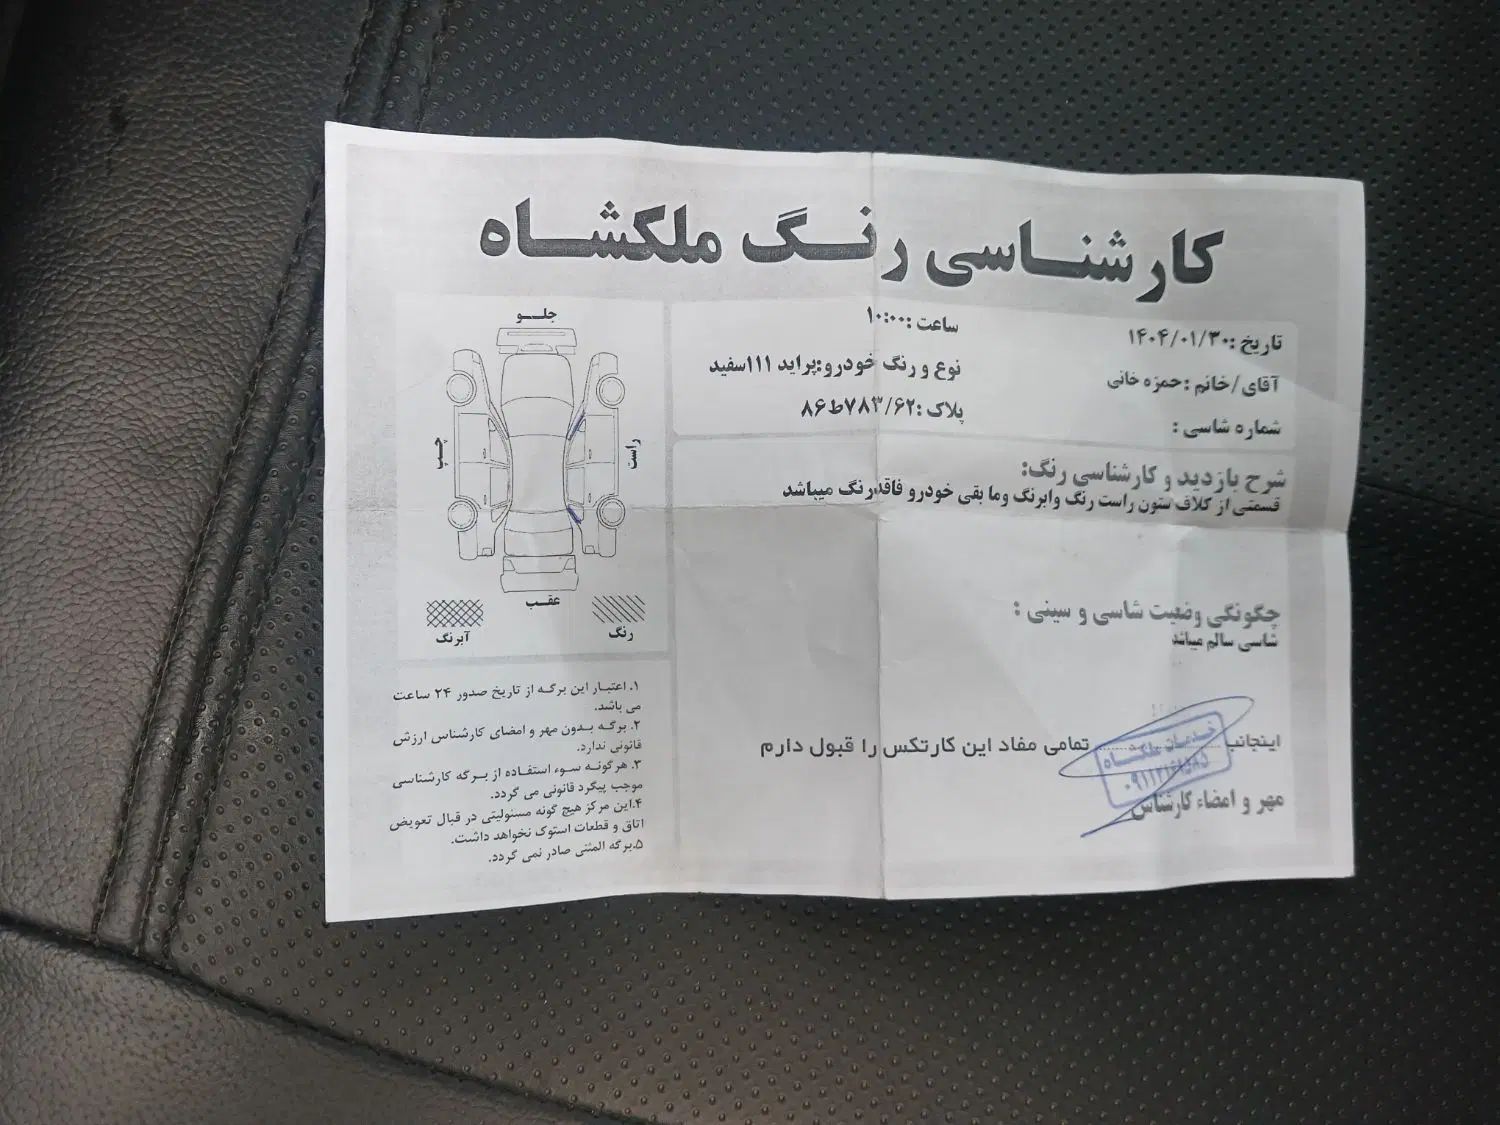 کارشناسی رنگ ملکشاه
تاریخ :۱۴۰۴/۰۱/۳۰
ساعت :۱۰:۰۰
آقای/خانم :حمزه خانی
نوع و رنگ خودرو:پراید ۱۱۱سفید
شماره شاسی :
پلاک :۷۸۳/۶۲ط۸۶
شرح بازدید و کارشناسی رنگ:
قسمتی از کلاف ستون راست رنگ وابرنگ وما بقی خودرو فاقدرنگ میباشد
چگونگی وضعیت شاسی و سینی :
شاسی سالم میباشد
اینجانب........................ تمامی مفاد این کارتکس را قبول دارم
مهر و امضاء کارشناس
خدمات ملکشاه
جلو
چپ
راست
عقب
رنگ
آبرنگ
۱. اعتبار این برگه از تاریخ صدور ۲۴ ساعت
می باشد.
۲. برگه بدون مهر و امضای کارشناس ارزش
قانونی ندارد.
۳. هرگونه سوء استفاده از برگه کارشناسی
موجب پیگرد قانونی می گردد.
۴.این مرکز هیچ گونه مسئولیتی در قبال تعویض
اتاق و قطعات استوک نخواهد داشت.
۵.برگه المثنی صادر نمی گردد.